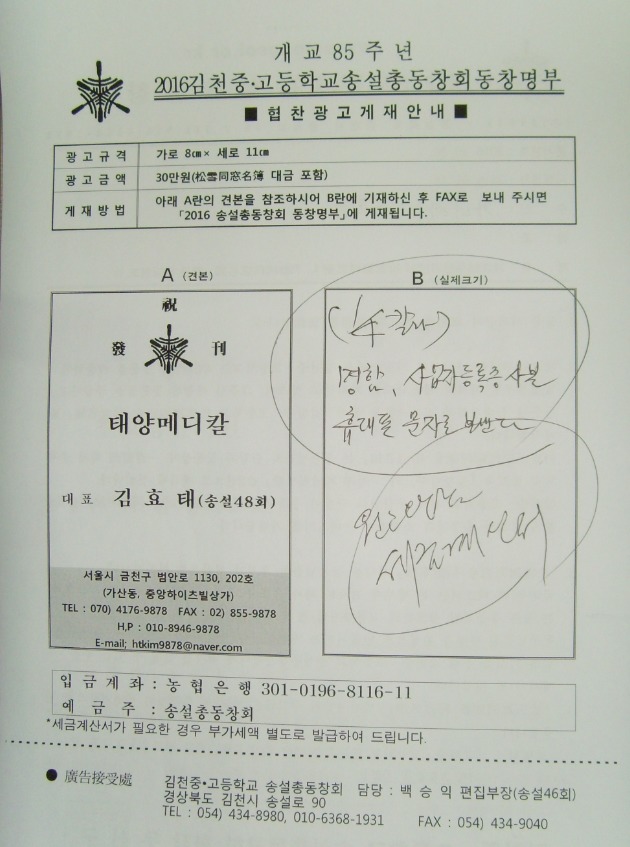 개교 85주년
2016김천중·고등학교송설총동창회동창명부
■ 협찬광고게재안내 ■
광고규격 가로 8㎝ × 세로 11㎝
광고금액 30만원(松雪同窓名簿 대금 포함)
게재방법 아래 A란의 견본을 참조하시어 B란에 기재하신 후 FAX로 보내 주시면
「2016 송설총동창회 동창명부」에 게재됩니다.
A (견본)
祝
發 刊
태양메디칼
대표 김효태(송설48회)
서울시 금천구 범안로 1130, 202호
(가산동, 중앙하이츠빌상가)
TEL : 070) 4176-9878 FAX : 02) 855-9878
H,P : 010-8946-9878
E-mail; htkim9878@naver.com
B (실제크기)
명함, 사업자등록증 사본
휴대폰 문자로 보낸다
입금계좌 : 농협은행 301-0196-8116-11
예금주 : 송설총동창회
*세금계산서가 필요한 경우 부가세액 별도로 발급하여 드립니다.
● 廣告接受處 김천중·고등학교 송설총동창회 담당 : 백승익 편집부장(송설46회)
경상북도 김천시 송설로 90
TEL : 054) 434-8980, 010-6368-1931 FAX : 054) 434-9040